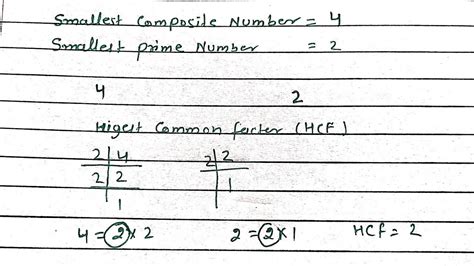 Smallest Composite Number = 4
Smallest prime Number = 2
4 2
Higest Common factor (HCF)
2 | 4 2 | 2
2 | 2 1
1
4 = 2 × 2 2 = 2 × 1 HCF = 2